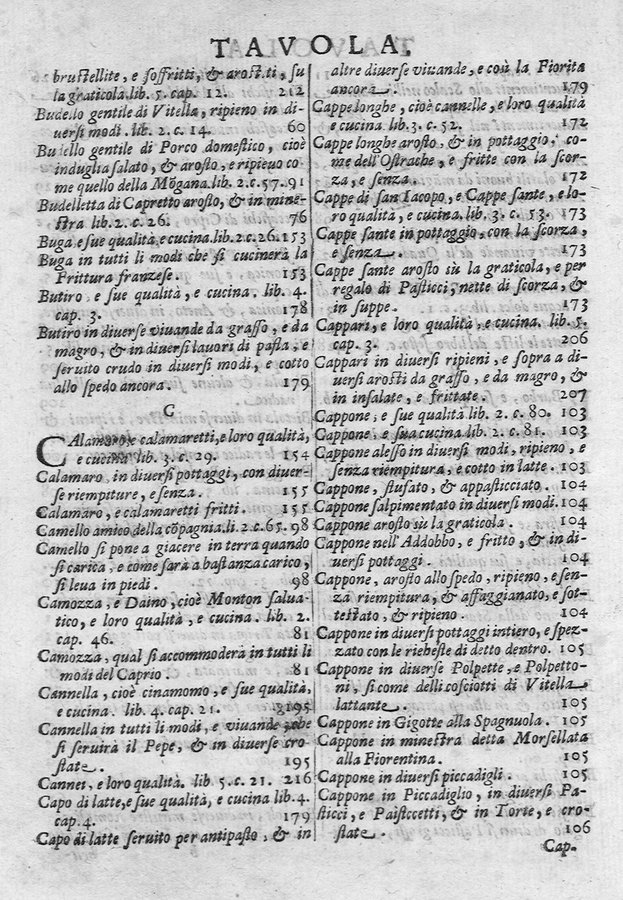 TAVOLA.
brustellite, e soffritti, & arosti, su
la graticola lib. 5. cap. 12. 212
Budello gentile di Vitella, ripieno in di-
uersi modi. lib. 2. c. 14. 60
Budello gentile di Porco domestico, cioè
induglia salato, & arosto, e ripieno co
me quello della Mõgana. lib. 2. c. 57. 91
Budelletta di Capretto arosto, & in mine-
stra lib. 2. c. 26. 76
Buga e sue qualità e cucina. lib. 2. c. 26. 153
Buga in tutti li modi che si cucinerà la
Frittura franzese. 153
Butiro e sue qualità, e cucina. lib. 4.
cap. 3. 178
Butiro in diuerse viuande da grasso, e da
magro, & in diuersi lauori di pasta, e
seruito crudo in diuersi modi, e cotto
allo spedo ancora. 179
C
CAlamaro, e calamaretti, e loro qualità,
e cucina lib. 3. c. 29. 154
Calamaro, in diuersi pottaggi, con diuer-
se riempiture, e senza. 155
Calamaro, e calamaretti fritti. 155
Camello amico della cõpagnia. li. 2. c. 65. 98
Camello si pone a giacere in terra quando
si carica, e come sarà a bastanza carico,
si leua in piedi. 98
Camozza, e Daino, cioè Monton salua-
tico, e loro qualità, e cucina. lib. 2.
cap. 46. 81
Camozza, qual si accommoderà in tutti li
modi del Caprio. 81
Cannella, cioè cinamomo, e sue qualità,
e cucina. lib. 4. cap. 21. 195
Cannella in tutti li modi, e viuande che
si seruirà il Pepe, & in diuerse cro
state. 195
Cannei, e loro qualità. lib 5. c. 21. 216
Capo di latte, e sue qualità, e cucina lib. 4.
cap. 4. 179
Capo di latte seruito per antipasto, & in
altre diuerse viuande, e così la Fiorita
ancora. 179
Cappe longhe, cioè cannelle, e loro qualità
e cucina. lib. 3. c. 52. 172
Cappe longhe arosto, & in pottaggio, co-
me dell'Ostrache, e fritte con la scor-
za, e senza. 172
Cappe di san Iacopo, e Cappe sante, e lo-
ro qualità, e cucina. lib. 3. c. 53. 173
Cappe sante in pottaggio, con la scorza,
e senza. 173
Cappe sante arosto sù la graticola, e per
regalo di Pasticci, nette di scorza, &
in suppe. 173
Cappari, e loro qualità, e cucina. lib. 5.
cap. 3. 206
Cappari in diuersi ripieni, e sopra a di-
uersi arosti da grasso, e da magro, &
in insalate, e frittate. 207
Cappone, e sue qualità lib. 2. c. 80. 103
Cappone, e sua cucina lib. 2. c. 81. 103
Cappone alesso in diuersi modi, ripieno, e
senza riempitura, e cotto in latte. 103
Cappone, stufato, & appasticciato. 104
Cappone salpimentato in diuersi modi. 104
Cappone arosto sù la graticola. 104
Cappone nell'Addobbo, e fritto, & in di-
uersi pottaggi. 104
Cappone, arosto allo spedo, ripieno, e sen-
za riempitura, & affaggianato, e sot-
testato, & ripieno. 104
Cappone in diuersi pottaggi intiero, e spez-
zato con le riheste di detto dentro. 105
Cappone in diuerse Polpette, e Polpetto-
ni, si come delli cosciotti di Vitella
lattante. 105
Cappone in Gigotte alla Spagnuola. 105
Cappone in minestra detta Morsellata
alla Fiorentina. 105
Cappone in diuersi piccadigli. 105
Cappone in Piccadiglio, in diuersi Pa-
sticci, e Paisticcetti, & in Torte, e cro-
state. 106
Cap.